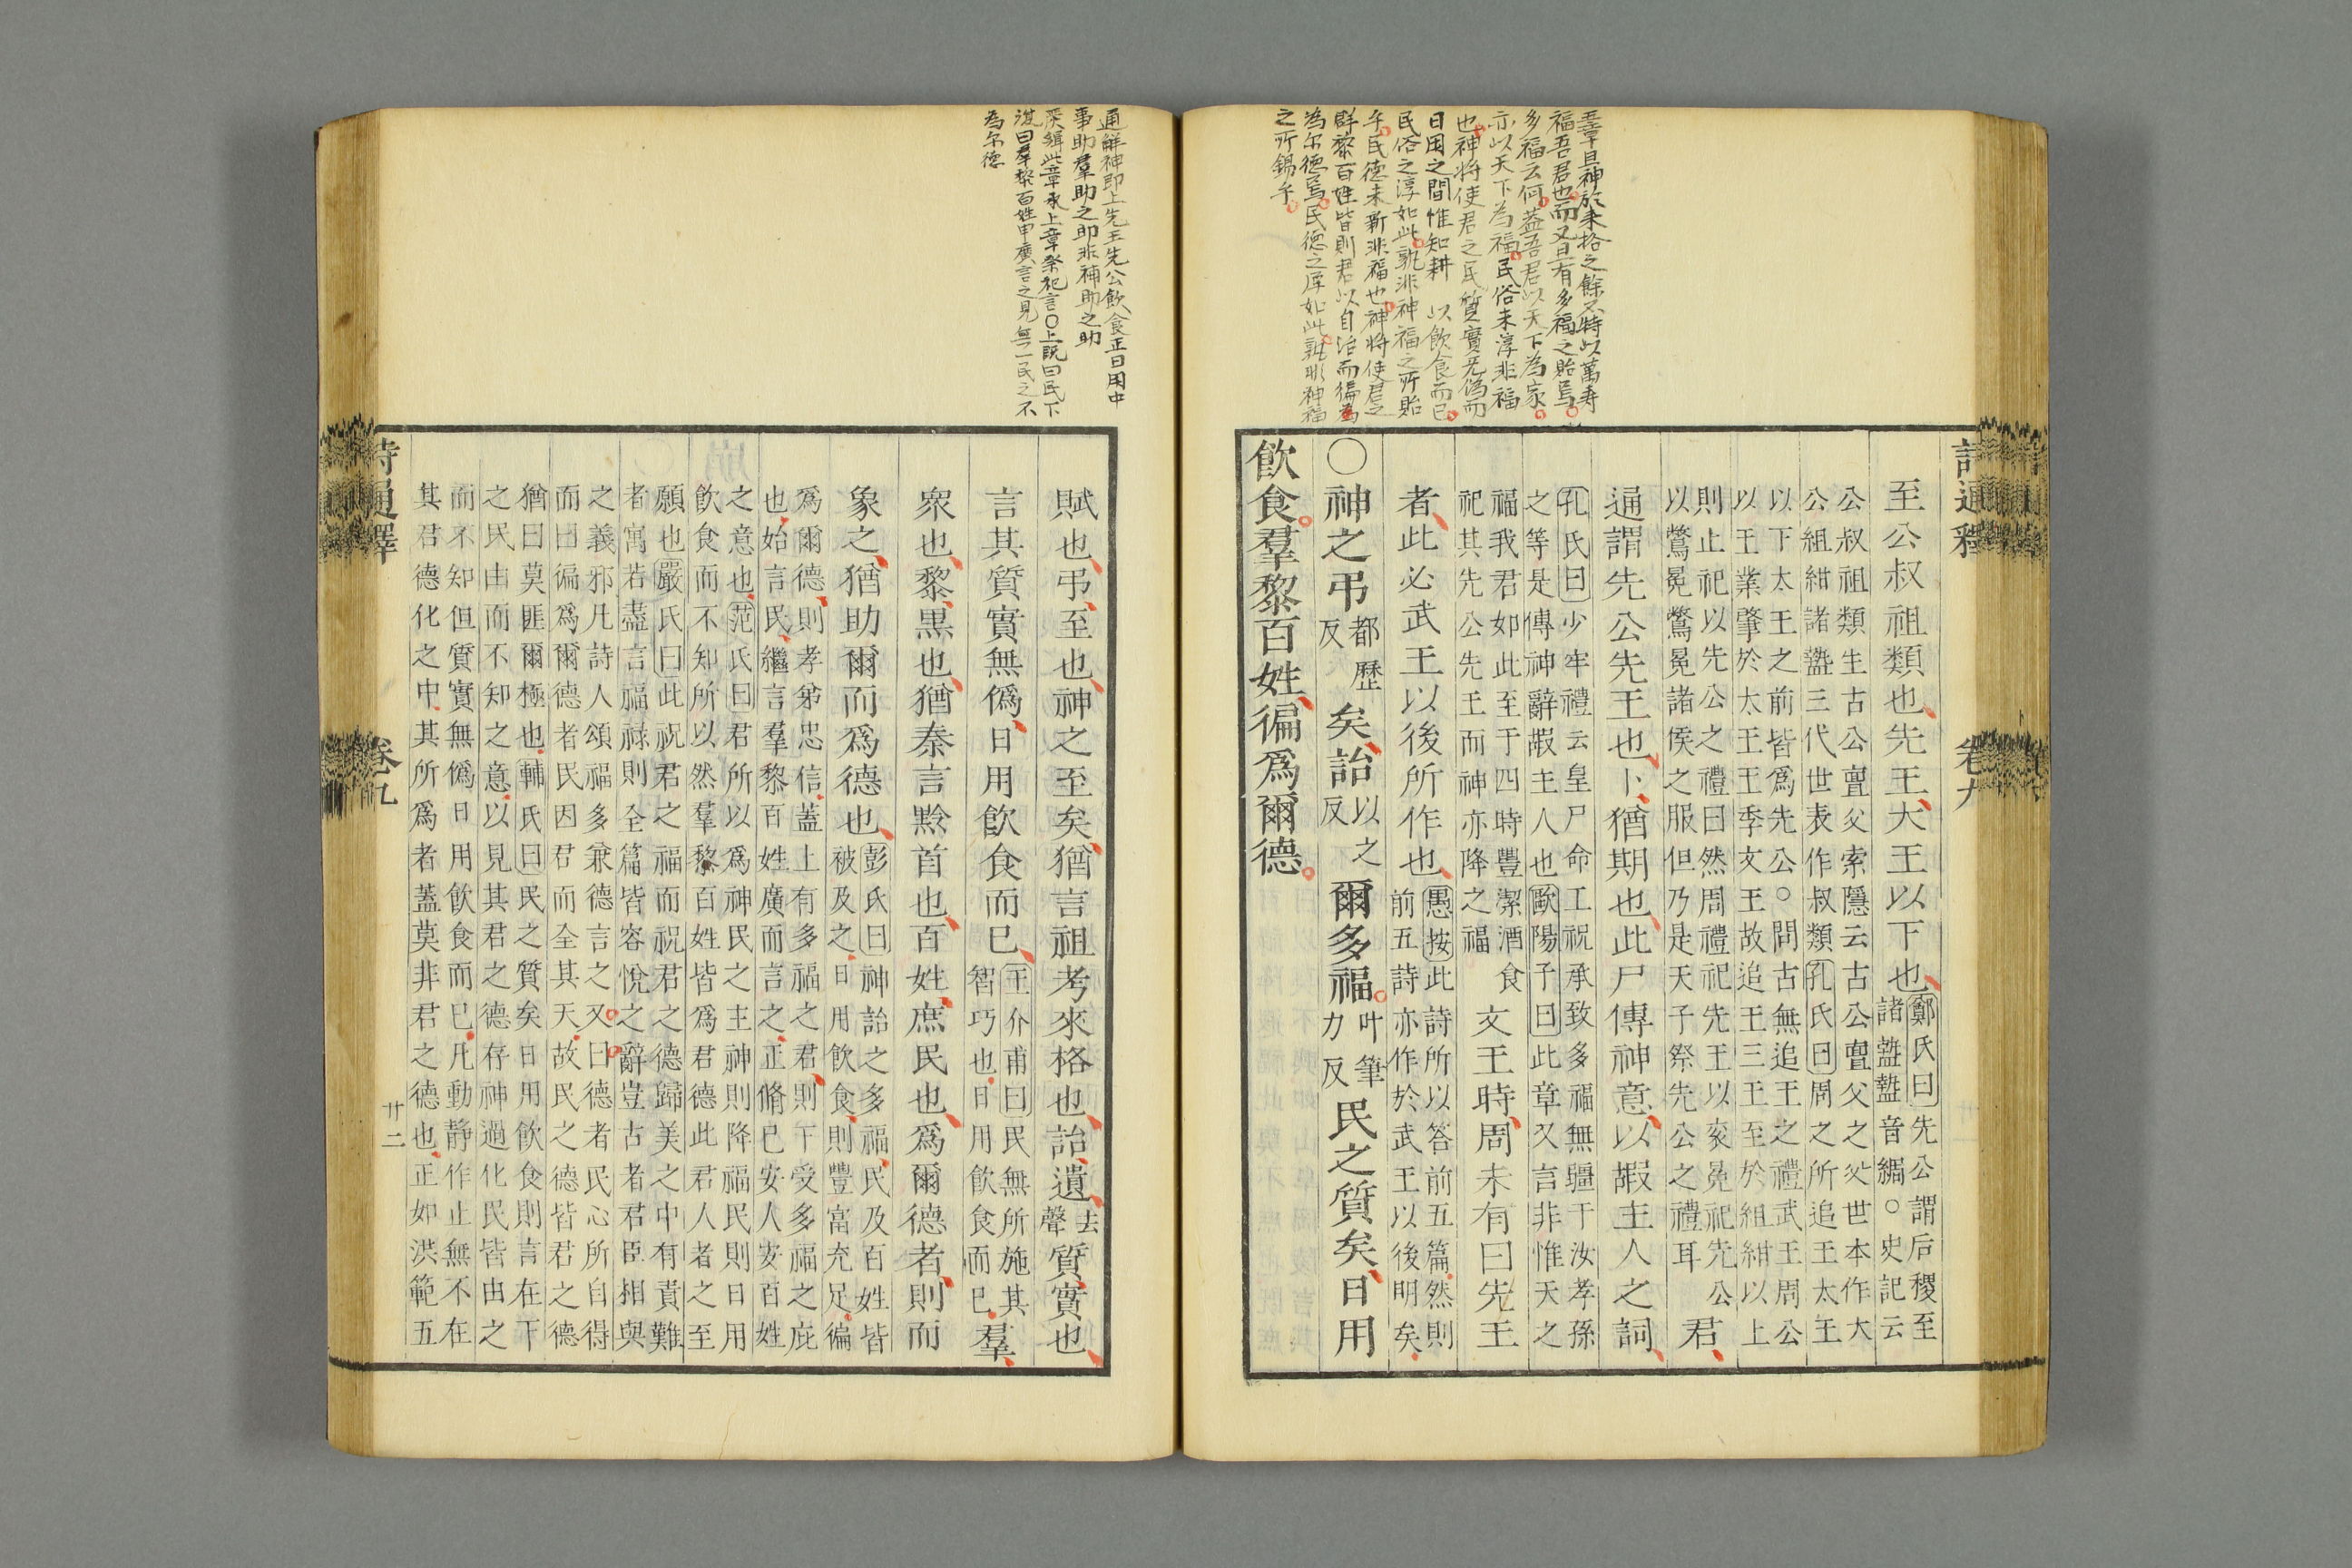 五章旦神於来格之餘不特以萬壽
福吾君也而又且有多福之貽焉
多福云何蓋吾君以天下為家
亦以天下為福民俗未淳非福
也神将使君之民質實无偽而
日用之間惟知耕 以飲食而已
民俗之淳如此孰非神福之所貽
乎民德未新非福也神将使君之
群黎百姓皆則君以自治而徧為
為尔德焉民德之厚如此孰非神福
之所錫乎
詩通釋 卷九
至公叔祖類也先王大王以下也
鄭氏曰先公謂后稷至
諸盩盩音綢○史記云
公叔祖類生古公亶父索隱云古公亶父之父世本作大
公組紺諸盩三代世表作叔類孔氏曰周之所追王太王
以下太王之前皆為先公○問古無追王之禮武王周公
以王業肇於太王王季文王故追王三王至於組紺以上
則止祀以先公之禮曰然周禮祀先王以衮冕祀先公
以鷩冕鷩冕諸侯之服但乃是天子祭先公之禮耳
君
通謂先公先王也卜猶期也此尸傳神意以嘏主人之詞
孔氏曰少牢禮云皇尸命工祝承致多福無疆于汝孝孫
之等是傳神辭嘏主人也歐陽子曰此章又言非惟天之
福我君如此至于四時豐潔酒食
祀其先公先王而神亦降之福
文王時周未有曰先王
者此必武王以後所作也
愚按此詩所以答前五篇然則
前五詩亦作於武王以後明矣
○神之弔都歷反矣詒以之反爾多福叶筆力反民之質矣日用
飲食羣黎百姓徧爲爾德
通觧神即上先王先公飲食正日用中
事助羣助之助非補助之助
羣黎百姓申廣言之見無一民之不
為尔德
賦也弔至也神之至矣猶言祖考來格也詒遺去聲質實也
言其質實無僞日用飲食而已
王介甫曰民無所施其
智巧也日用飲食而已
羣
衆也黎黑也猶秦言黔首也百姓庶民也爲爾德者則而
象之猶助爾而爲德也
彭氏曰神詒之多福民及百姓皆
被及之日用飲食則豐富充足徧
爲爾德則孝弟忠信蓋上有多福之君則下受多福之庇
也始言民繼言羣黎百姓廣而言之正脩已安人安百姓
之意也范氏曰君所以爲神民之主神則降福民則日用
飲食而不知所以然羣黎百姓皆爲君德此君人者之至
願也嚴氏曰此祝君之福而祝君之德歸美之中有責難
者寓若盡言福祿則全篇皆容悅之辭豈古者君臣相與
之義邪凡詩人頌福多兼德言之又曰德者民心所自得
而曰徧爲爾德者民因君而全其天故民之德皆君之德
猶曰莫匪爾極也輔氏曰民之質矣日用飲食則言在下
之民由而不知之意以見其君之德存神過化民皆由之
而不知但質實無僞日用飲食而已凡動靜作止無不在
其君德化之中其所爲者蓋莫非君之德也正如洪範五
詩通釋 卷九 廿二